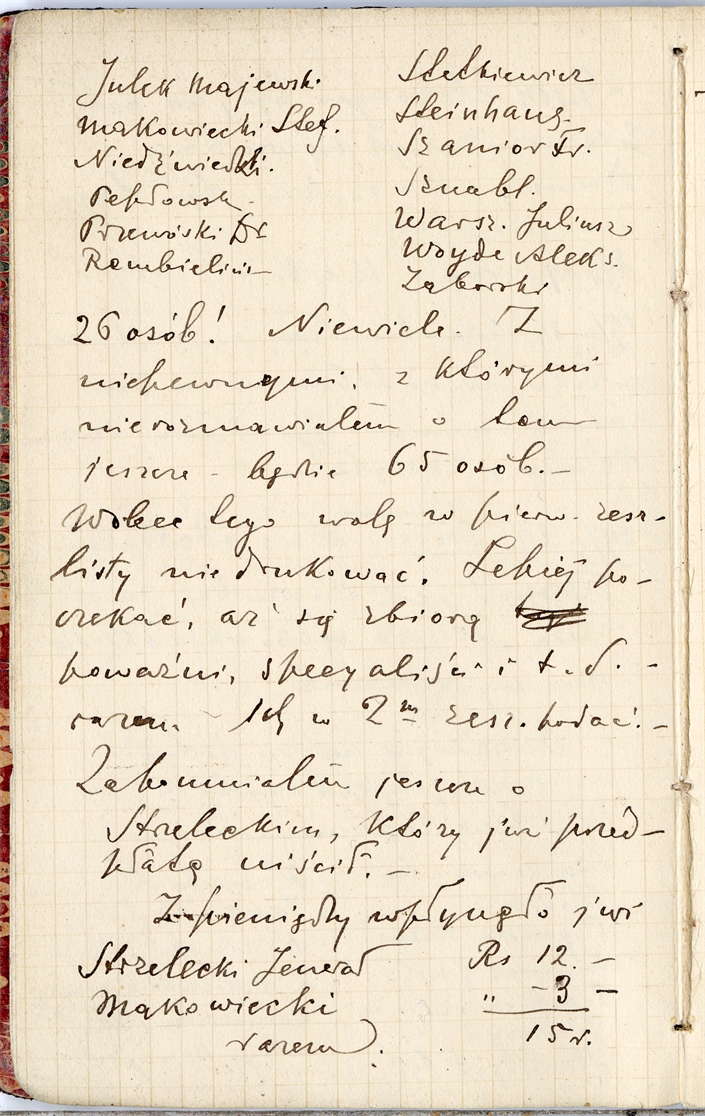 Julek Majewski
Makowiecki Stef.
Niedźwiedzki.
Pepłowsk-
Przewóski Dr
Rembielin-
Stetkiewicz
Steinhaug-
Szanior Fr.
Sznabl.
Warsz. Juliusz
Woyde Aleks.
Zaborski
26 osób! Niewiele. Z
niepewnymi, z którymi
nierozmawiałem o tem
jeszcze - będzie 65 osób.-
Wobec tego wolę w pierw. zesz-
listy nie drukować. Lepiej po-
czekać, aż się zbiorą
poważni, specyaliści i t.d. -
razem Ich w 2m zesz. podać.-
Zapomniałem jeszcze o
Strzeleckim, który już przed-
płatę uiścił. -
Z pieniędzy wpłynęło już
Strzelecki Rs 12. -
Makowiecki " - 3 -
razem. 15 r.